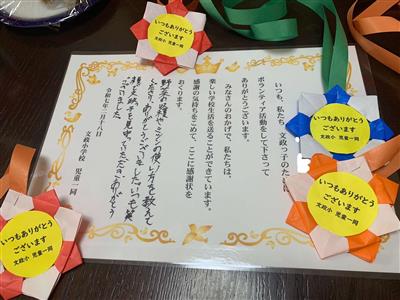 いつもありがとう
ございます
文政小 児童一同
いつも、私たち、文政っ子のために
ボランティア活動をして下さって
ありがとうございます。
みなさんのおかげで、私たちは、
楽しい学校生活を送ることができています。
感謝の気持ちをこめて、ここに感謝状を
おくります。
野菜の やミシンの使い方を教えて
くださり、ありがとうございました。毛筆
も見ていただきありがとう
ございました。
令和七年二月十八日
文政小学校 児童一同
いつもありがとう
ございます
文政小 児童一同
いつもありがとう
ございます
文政小 児童一同
いつもありがとう
ございます
文政小 児童一同